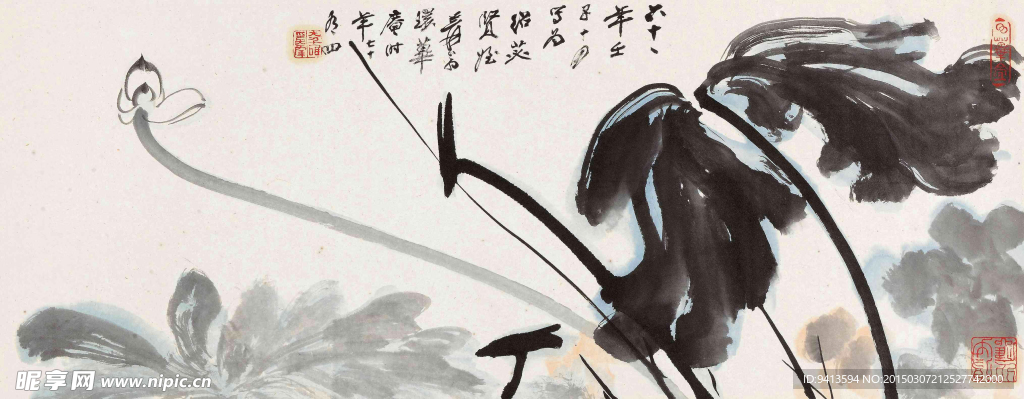 六十一
年壬
子十月
寫為
賢姪
爰翁
環蓽
庵時
年七十
有四
昵享网 www.nipic.cn
ID:9413594 NO:20150307212527742000